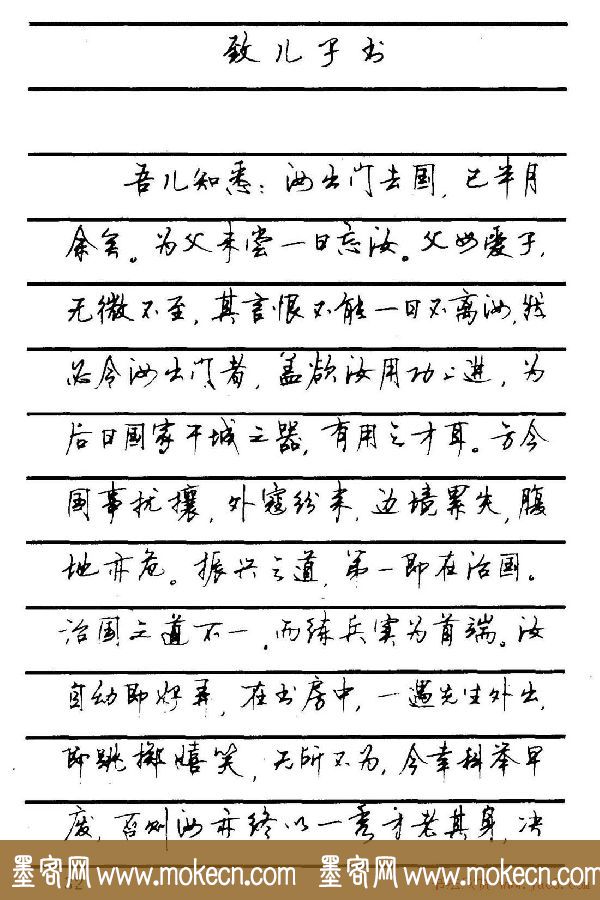 致儿子书
吾儿知悉：汝出门去国，已半月
余矣。为父未尝一日忘汝。父母爱子，
无微不至，其言恨不能一日不离汝，然
必令汝出门者，盖欲汝用功上进，为
后日国家干城之器，有用之才耳。方今
国事扰攘，外寇纷来，边境累失，腹
地亦危。振兴之道，第一即在治国。
治国之道不一，而练兵实为首端。汝
自幼即好弄，在书房中，一遇先生外出，
即跳掷嬉笑，无所不为，今幸科举早
废，否则汝亦终以一秀才老其身，决
墨客网 www.mokecn.com 墨客网 www.mokecn.com